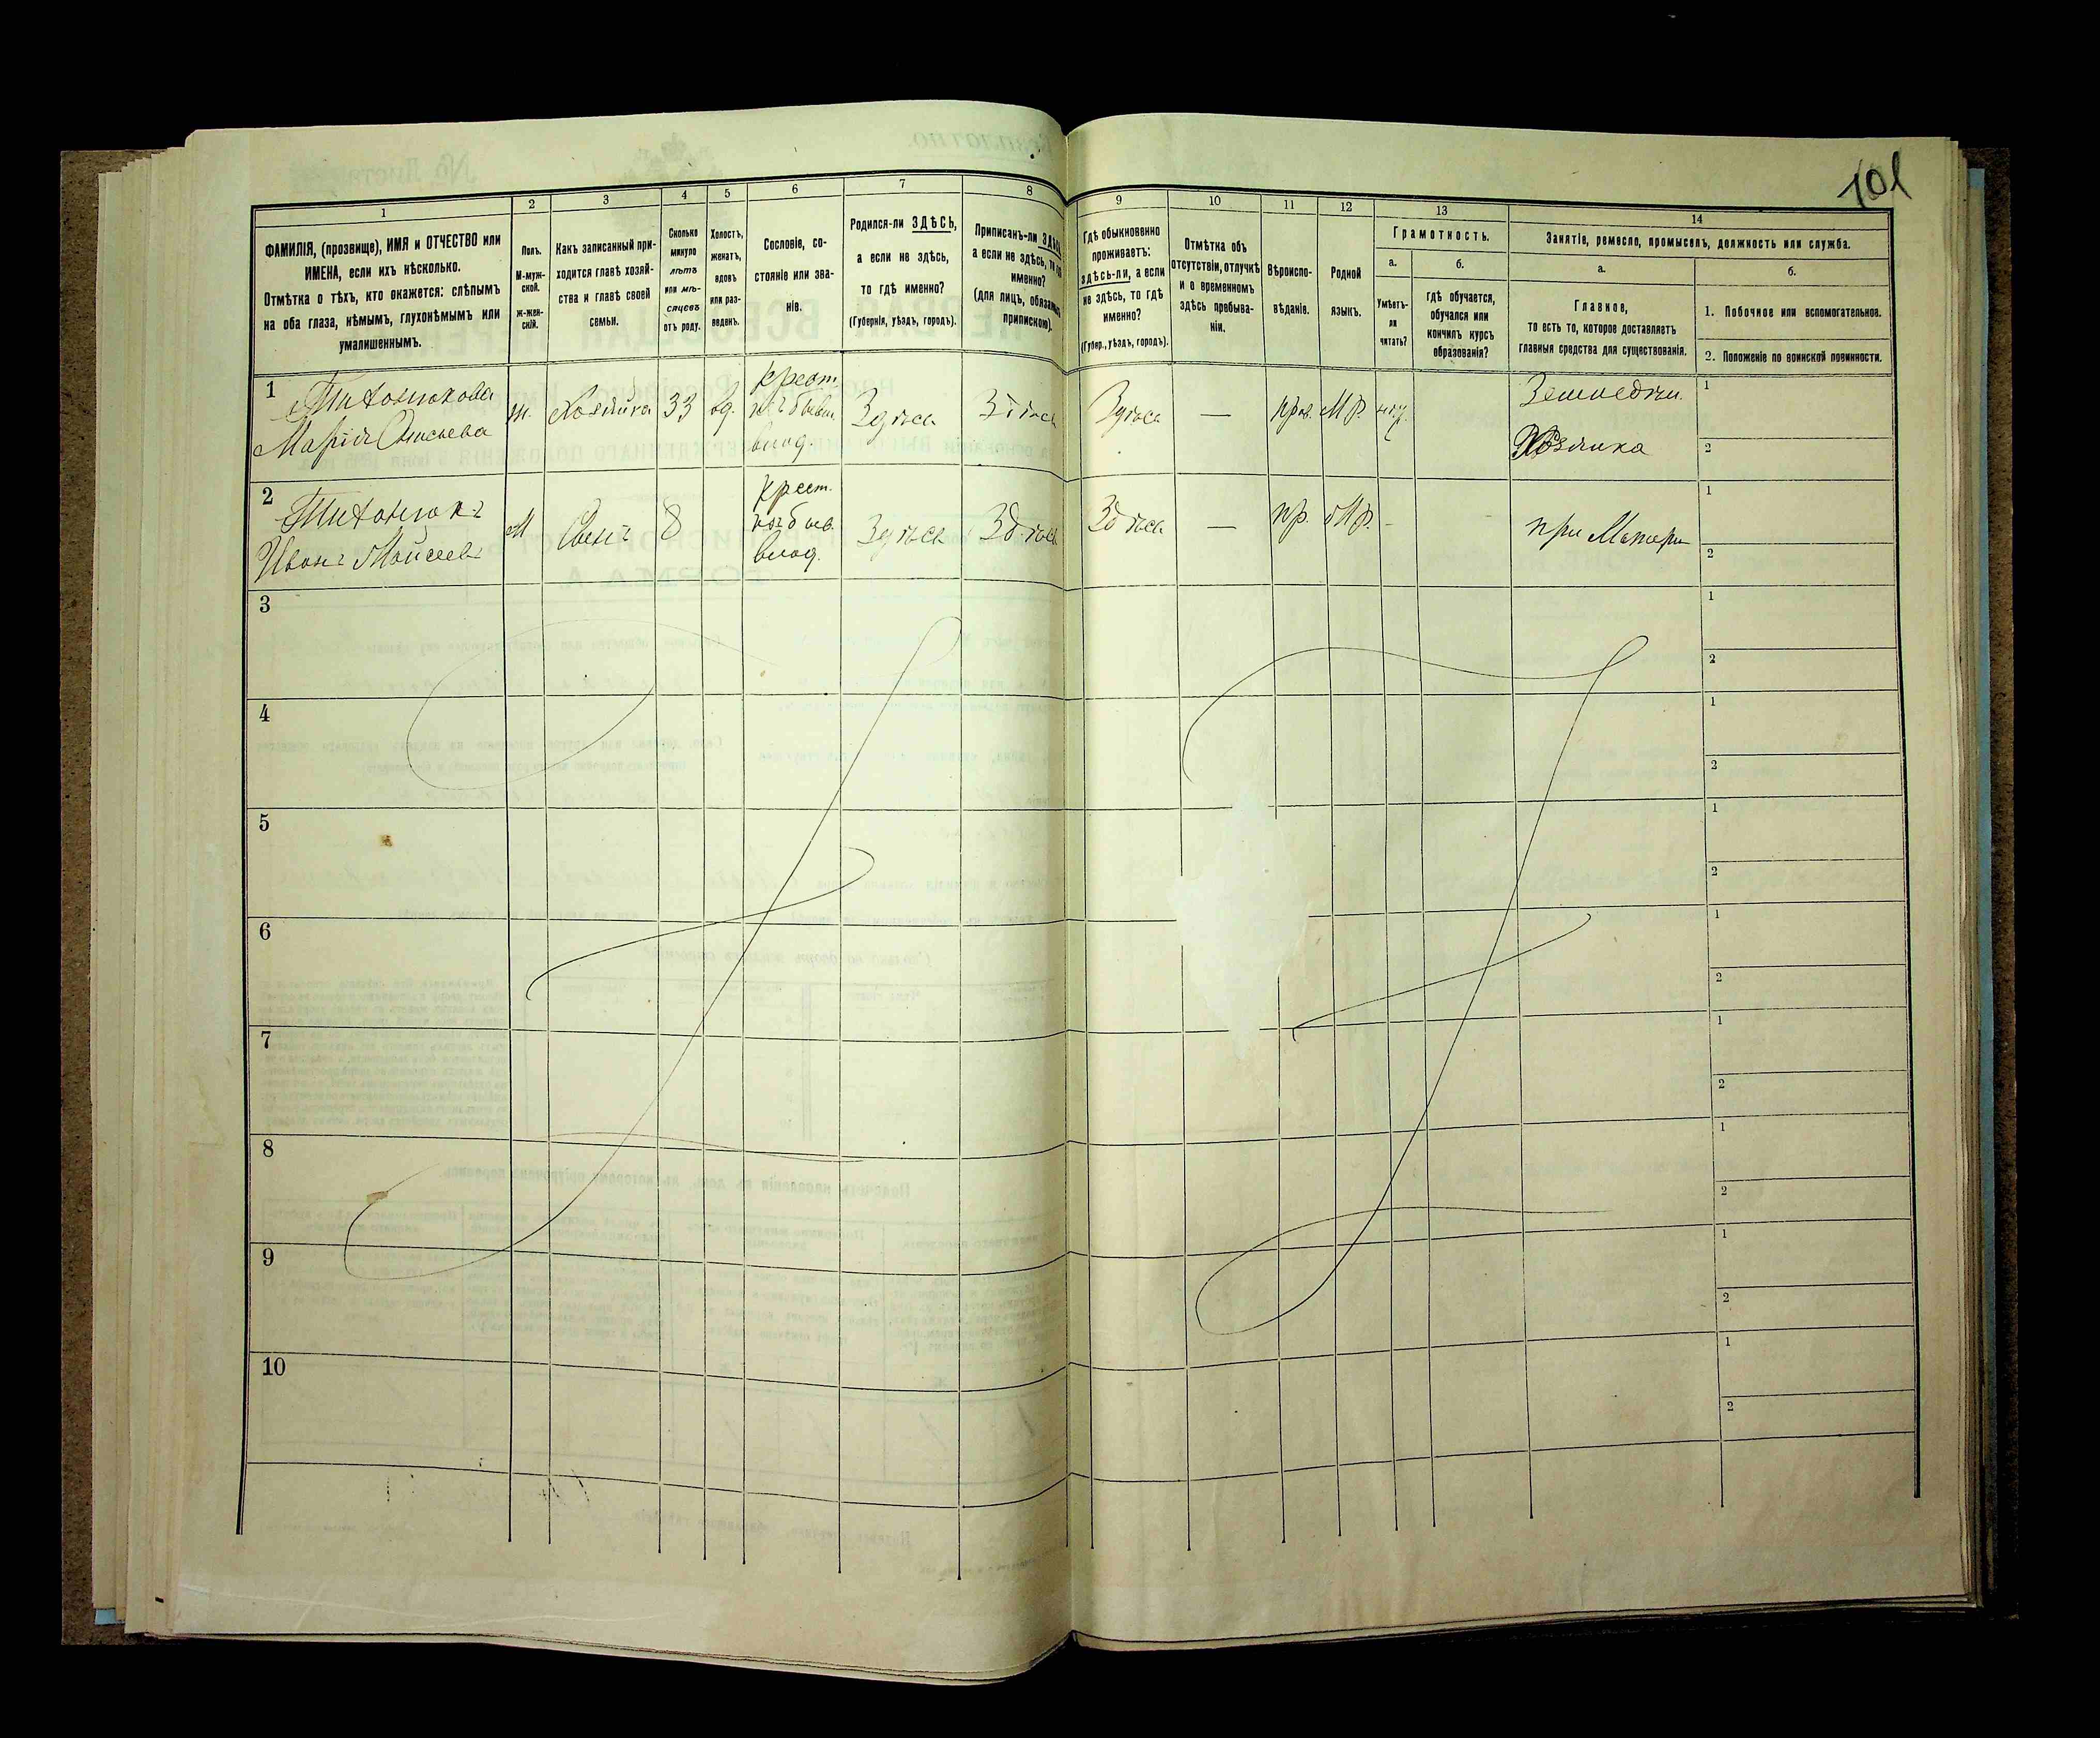 101
1
2
3
4
5
6
7
8
9
10
11
12
13
14
ФАМИЛІЯ, (прозвище), ИМЯ и ОТЧЕСТВО или
ИМЕНА, если ихъ нѣсколько.
Отмѣтка о тѣхъ, кто окажется: слѣпымъ
на оба глаза, нѣмымъ, глухонѣмымъ или
умалишеннымъ.
Полъ.
М-муж-
ской.
Ж-жен-
скій.
Какъ записанный при-
ходится главѣ хозяй-
ства и главѣ своей
семьи.
Сколько
минуло
лѣтъ
или мѣ-
сяцевъ
отъ роду.
Холостъ,
женатъ,
вдовъ
или раз-
веденъ.
Сословіе, со-
стояніе или зва-
ніе.
Родился-ли ЗДѢСЬ,
а если не здѣсь,
то гдѣ именно?
(Губернія, уѣздъ, городъ).
Приписанъ-ли ЗДѢСЬ,
а если не здѣсь, то гдѣ
именно?
(для лицъ, обязанныхъ
припискою).
Гдѣ обыкновенно
проживаетъ:
здѣсь-ли, а если
не здѣсь, то гдѣ
именно?
(Губер., уѣздъ, городъ).
Отмѣтка объ
отсутствіи, отлучкѣ
и о временномъ
здѣсь пребыва-
ніи.
Вѣроиспо-
вѣданіе.
Родной
языкъ.
Грамотность.
а.
Умѣетъ-
ли
читать?
б.
Гдѣ обучается,
обучался или
кончилъ курсъ
образованія?
Занятіе, ремесло, промыселъ, должность или служба.
а.
Главное,
то есть то, которое доставляетъ
главныя средства для существованія.
б.
1. Побочное или вспомогательное.
2. Положеніе по воинской повинности.
1
Марія
ж. Хозяйка 33 вд.
крест.
изъ бывш.
влад.
Здѣсь Здѣсь Здѣсь — прав. М.Р. нѣт.
Хозяйка
1
2
2
Иванъ Мойсеевъ
М Сынъ 8
крест.
изъ быв.
влад.
Здѣсь Здѣсь Здѣсь — пр. М.Р. -
при Матери
1
2
3
1
2
4
1
2
5
1
2
6
1
2
7
1
2
8
1
2
9
1
2
10
1
2